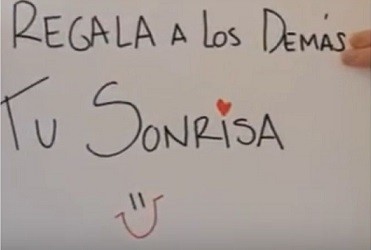 REGALA A LOS DEMÁS
TU SONRISA